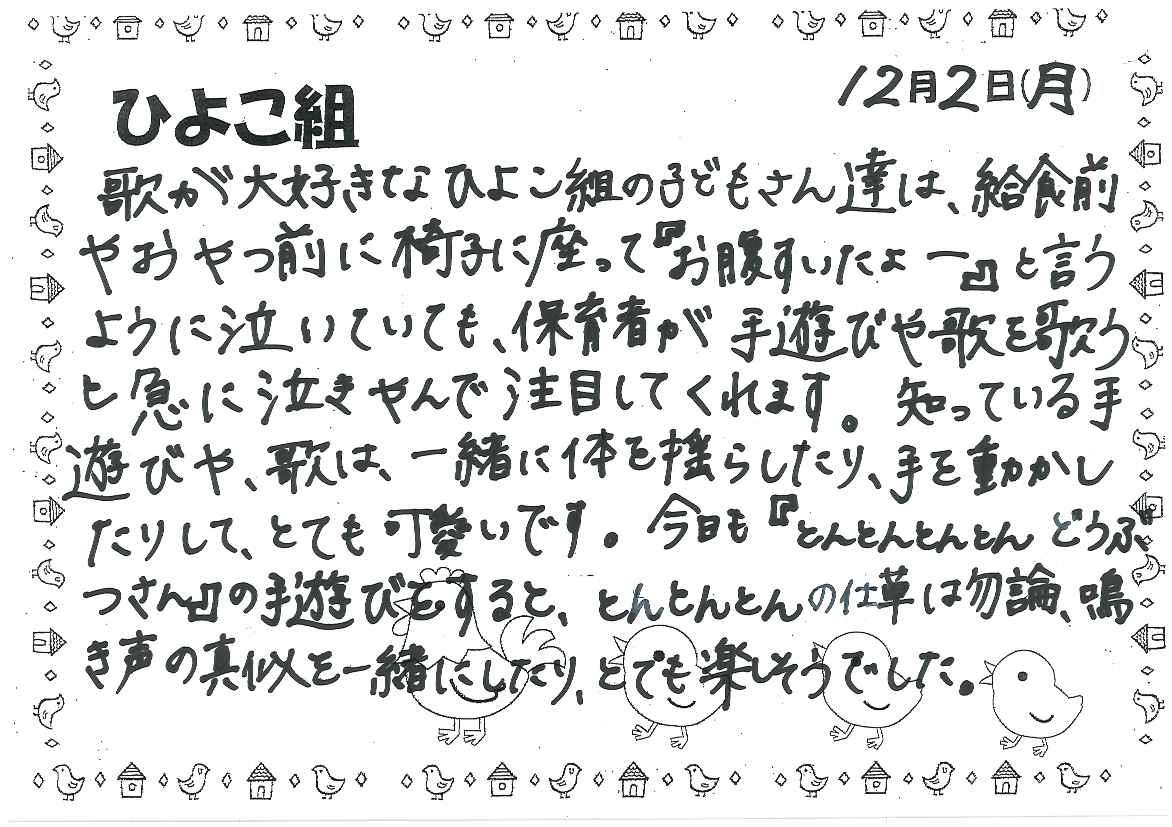 ひよこ組
12月2日(月)
歌が大好きなひよこ組の子どもさん達は、給食前
やおやつ前に椅子に座って『お腹すいたよー』と言う
ように泣いていても、保育者が手遊びや歌を歌う
と急に泣きやんで注目してくれます。知っている手
遊びや、歌は、一緒に体を揺らしたり、手を動かし
たりして、とても可愛いです。今日も『とんとんとんとん どうぶ
つさん』の手遊びをすると、とんとんとんの仕草は勿論、鳴
き声の真似を一緒にしたり、とても楽しそうでした。